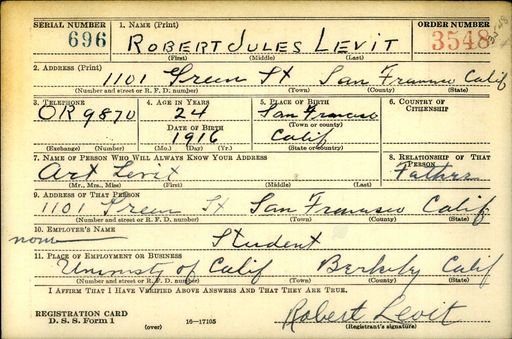 SERIAL NUMBER 1. NAME (Print) ORDER NUMBER
696 ROBERT JULES LEVIT 3548
(First) (Middle) (Last)
2. ADDRESS (Print)
1101 Green St San Francisco Calif
(Number and street or R. F. D. number) (Town) (County) (State)
3. TELEPHONE 4. AGE IN YEARS 5. PLACE OF BIRTH 6. COUNTRY OF CITIZENSHIP
OR 9870 24 San Francisco
DATE OF BIRTH (Town or county)
1916 Calif
(Exchange) (Number) (Mo.) (Day) (Yr.) (State or country)
7. NAME OF PERSON WHO WILL ALWAYS KNOW YOUR ADDRESS 8. RELATIONSHIP OF THAT PERSON
Art Levit Father
(Mr., Mrs., Miss) (First) (Middle) (Last)
9. ADDRESS OF THAT PERSON
1101 Green St San Francisco Calif
(Number and street or R. F. D. number) (Town) (County) (State)
10. EMPLOYER'S NAME
none Student
11. PLACE OF EMPLOYMENT OR BUSINESS
University of Calif Berkeley Calif
(Number and street or R. F. D. number) (Town) (County) (State)
I AFFIRM THAT I HAVE VERIFIED ABOVE ANSWERS AND THAT THEY ARE TRUE.
REGISTRATION CARD
D. S. S. Form 1 (over) 16-17105 Robert Levit
(Registrant's signature)